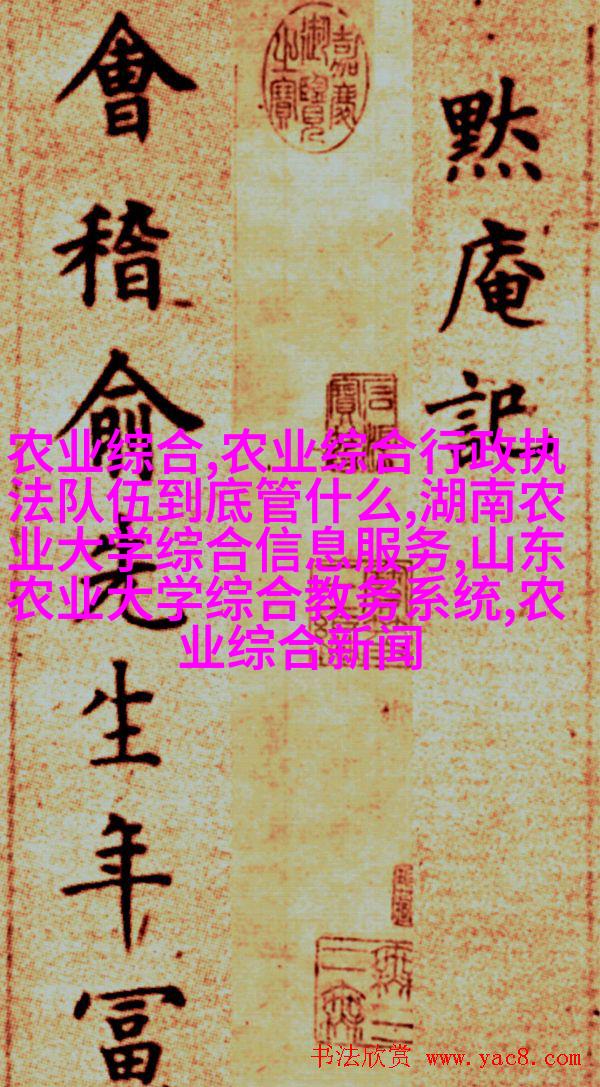 默庵記
會稽俞先生年富
嘉慶御覽之寶
农业综合,农业综合行政执
法队伍到底管什么,湖南农
业大学综合信息服务,山东
农业大学综合教务系统,农
业综合新闻
书法欣赏 www.yac8.com